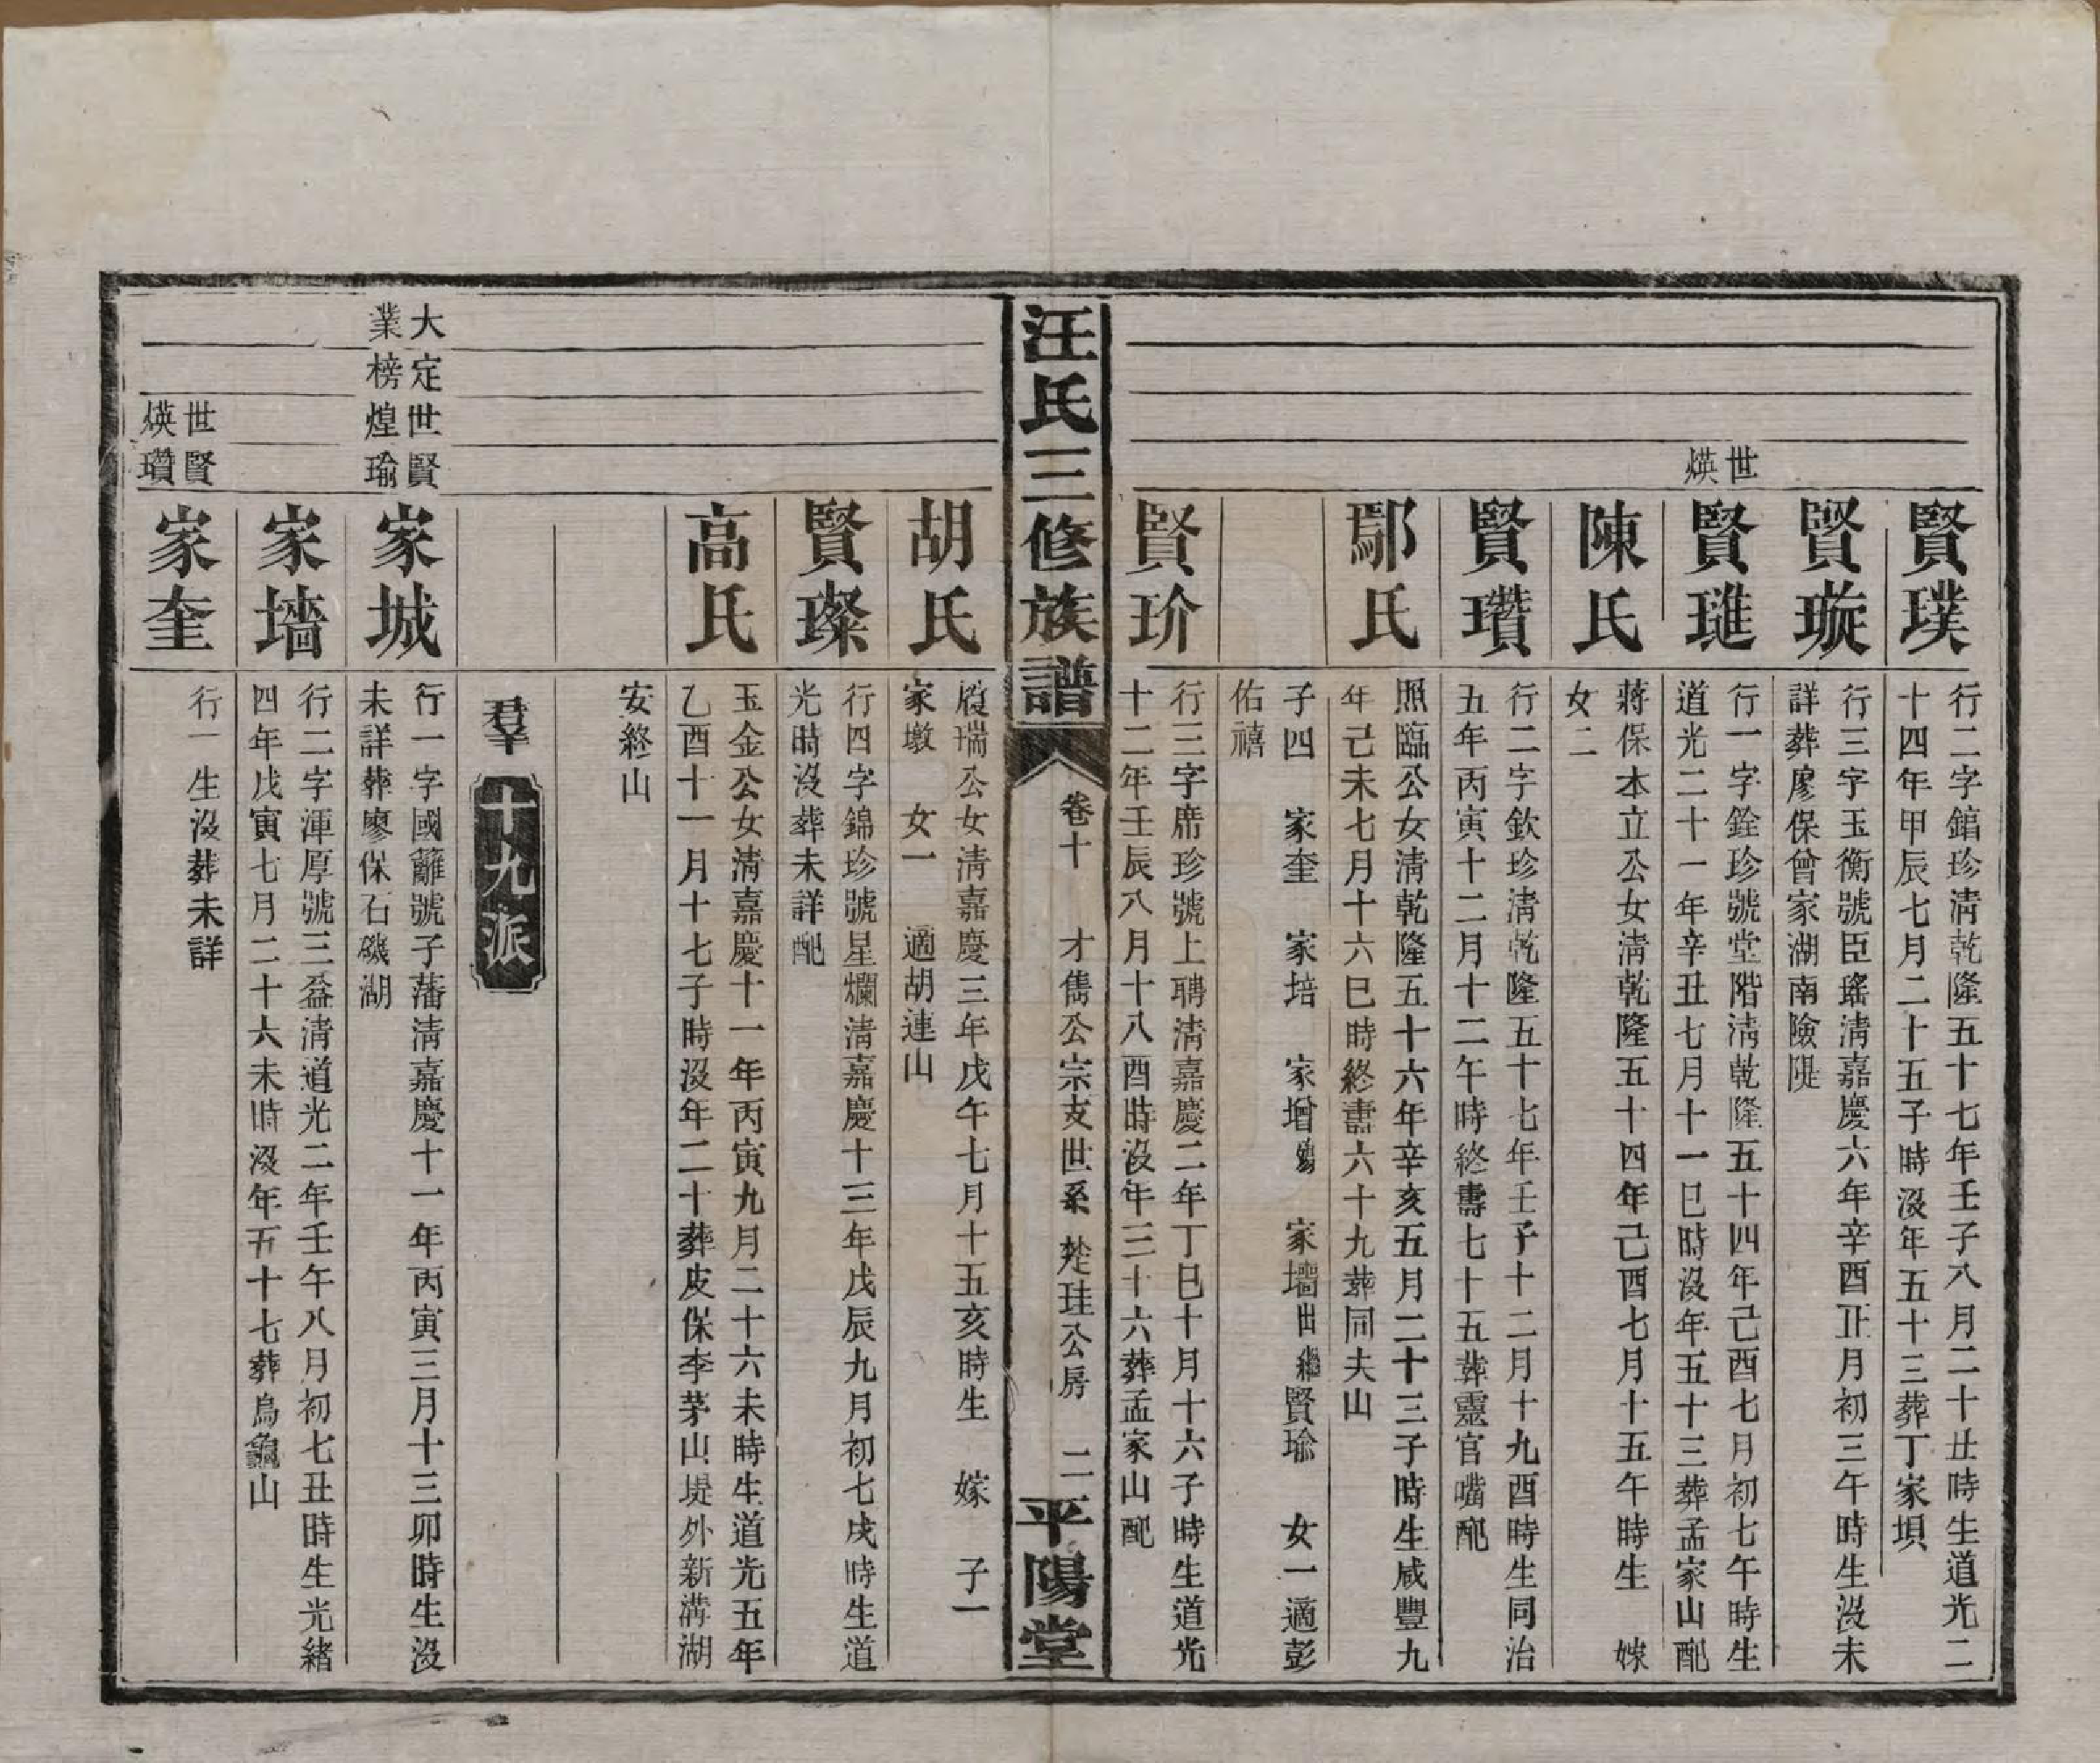 賢璞
行二字錧珍清乾隆五十七年壬子八月二十丑時生道光二
十四年甲辰七月二十五子時沒年五十三葬丁家垻
賢璇
行三字玉衡號臣瑤清嘉慶六年辛酉正月初三午時生沒未
詳葬廖保曾家湖南險隄
世
煐
賢璡
行一字銓珍號堂階清乾隆五十四年己酉七月初七午時生
道光二十一年辛丑七月十一巳時沒年五十三葬孟家山配
陳氏
蔣保本立公女清乾隆五十四年己酉七月十五午時生 嫁
女二
賢瓚
行二字欽珍清乾隆五十七年壬子十二月十九酉時生同治
五年丙寅十二月十二午時終壽七十五葬靈官嘴配
鄢氏
照臨公女清乾隆五十六年辛亥五月二十三子時生咸豐九
年己未七月十六巳時終壽六十九葬同夫山
子四 家奎 家培 家增 殤 家墻 出繼賢瑜 女一適彭
佑禧
賢玠
行三字席珍號上聘清嘉慶二年丁巳十月十六子時生道光
十二年壬辰八月十八酉時沒年三十六葬孟家山配
汪氏三修族譜
卷十 才雋公宗支世系 珪公房 二
平陽堂
胡氏
殷瑞公女清嘉慶三年戊午七月十五亥時生 嫁 子一
家墩 女一 適胡連山
賢璨
行四字錦珍號星爛清嘉慶十三年戊辰九月初七戌時生道
光時沒葬未詳配
高氏
玉金公女清嘉慶十一年丙寅九月二十六未時生道光五年
乙酉十一月十七子時沒年二十葬皮保李茅山堤外新溝湖
安終山
羣
十九派
大定世賢
業榜煌瑜
家城
行一字國籬號子藩清嘉慶十一年丙寅三月十三卯時生沒
未詳葬廖保石磯湖
家墻
行二字渾厚號三益清道光二年壬午八月初七丑時生光緒
四年戊寅七月二十六未時沒年五十七葬烏龜山
世賢
煐瓚
家奎
行一生沒葬未詳